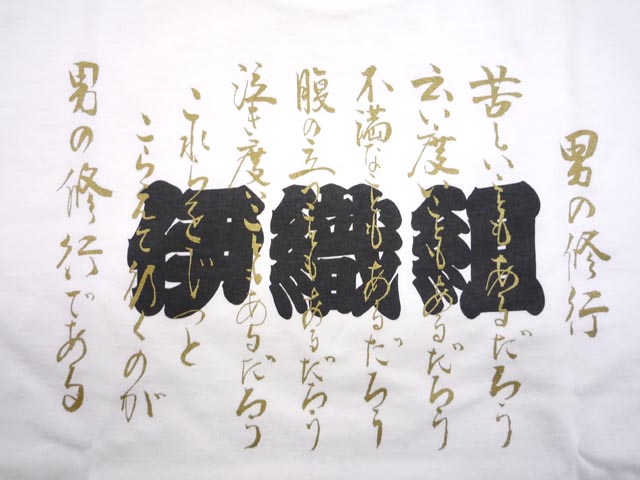 男の修行
苦しいこともあるだろう
云い度いこともあるだろう
不満なこともあるだろう
腹の立つこともあるだろう
泣き度いこともあるだろう
これらをじっと
こらえて行くのが
男の修行である
織組